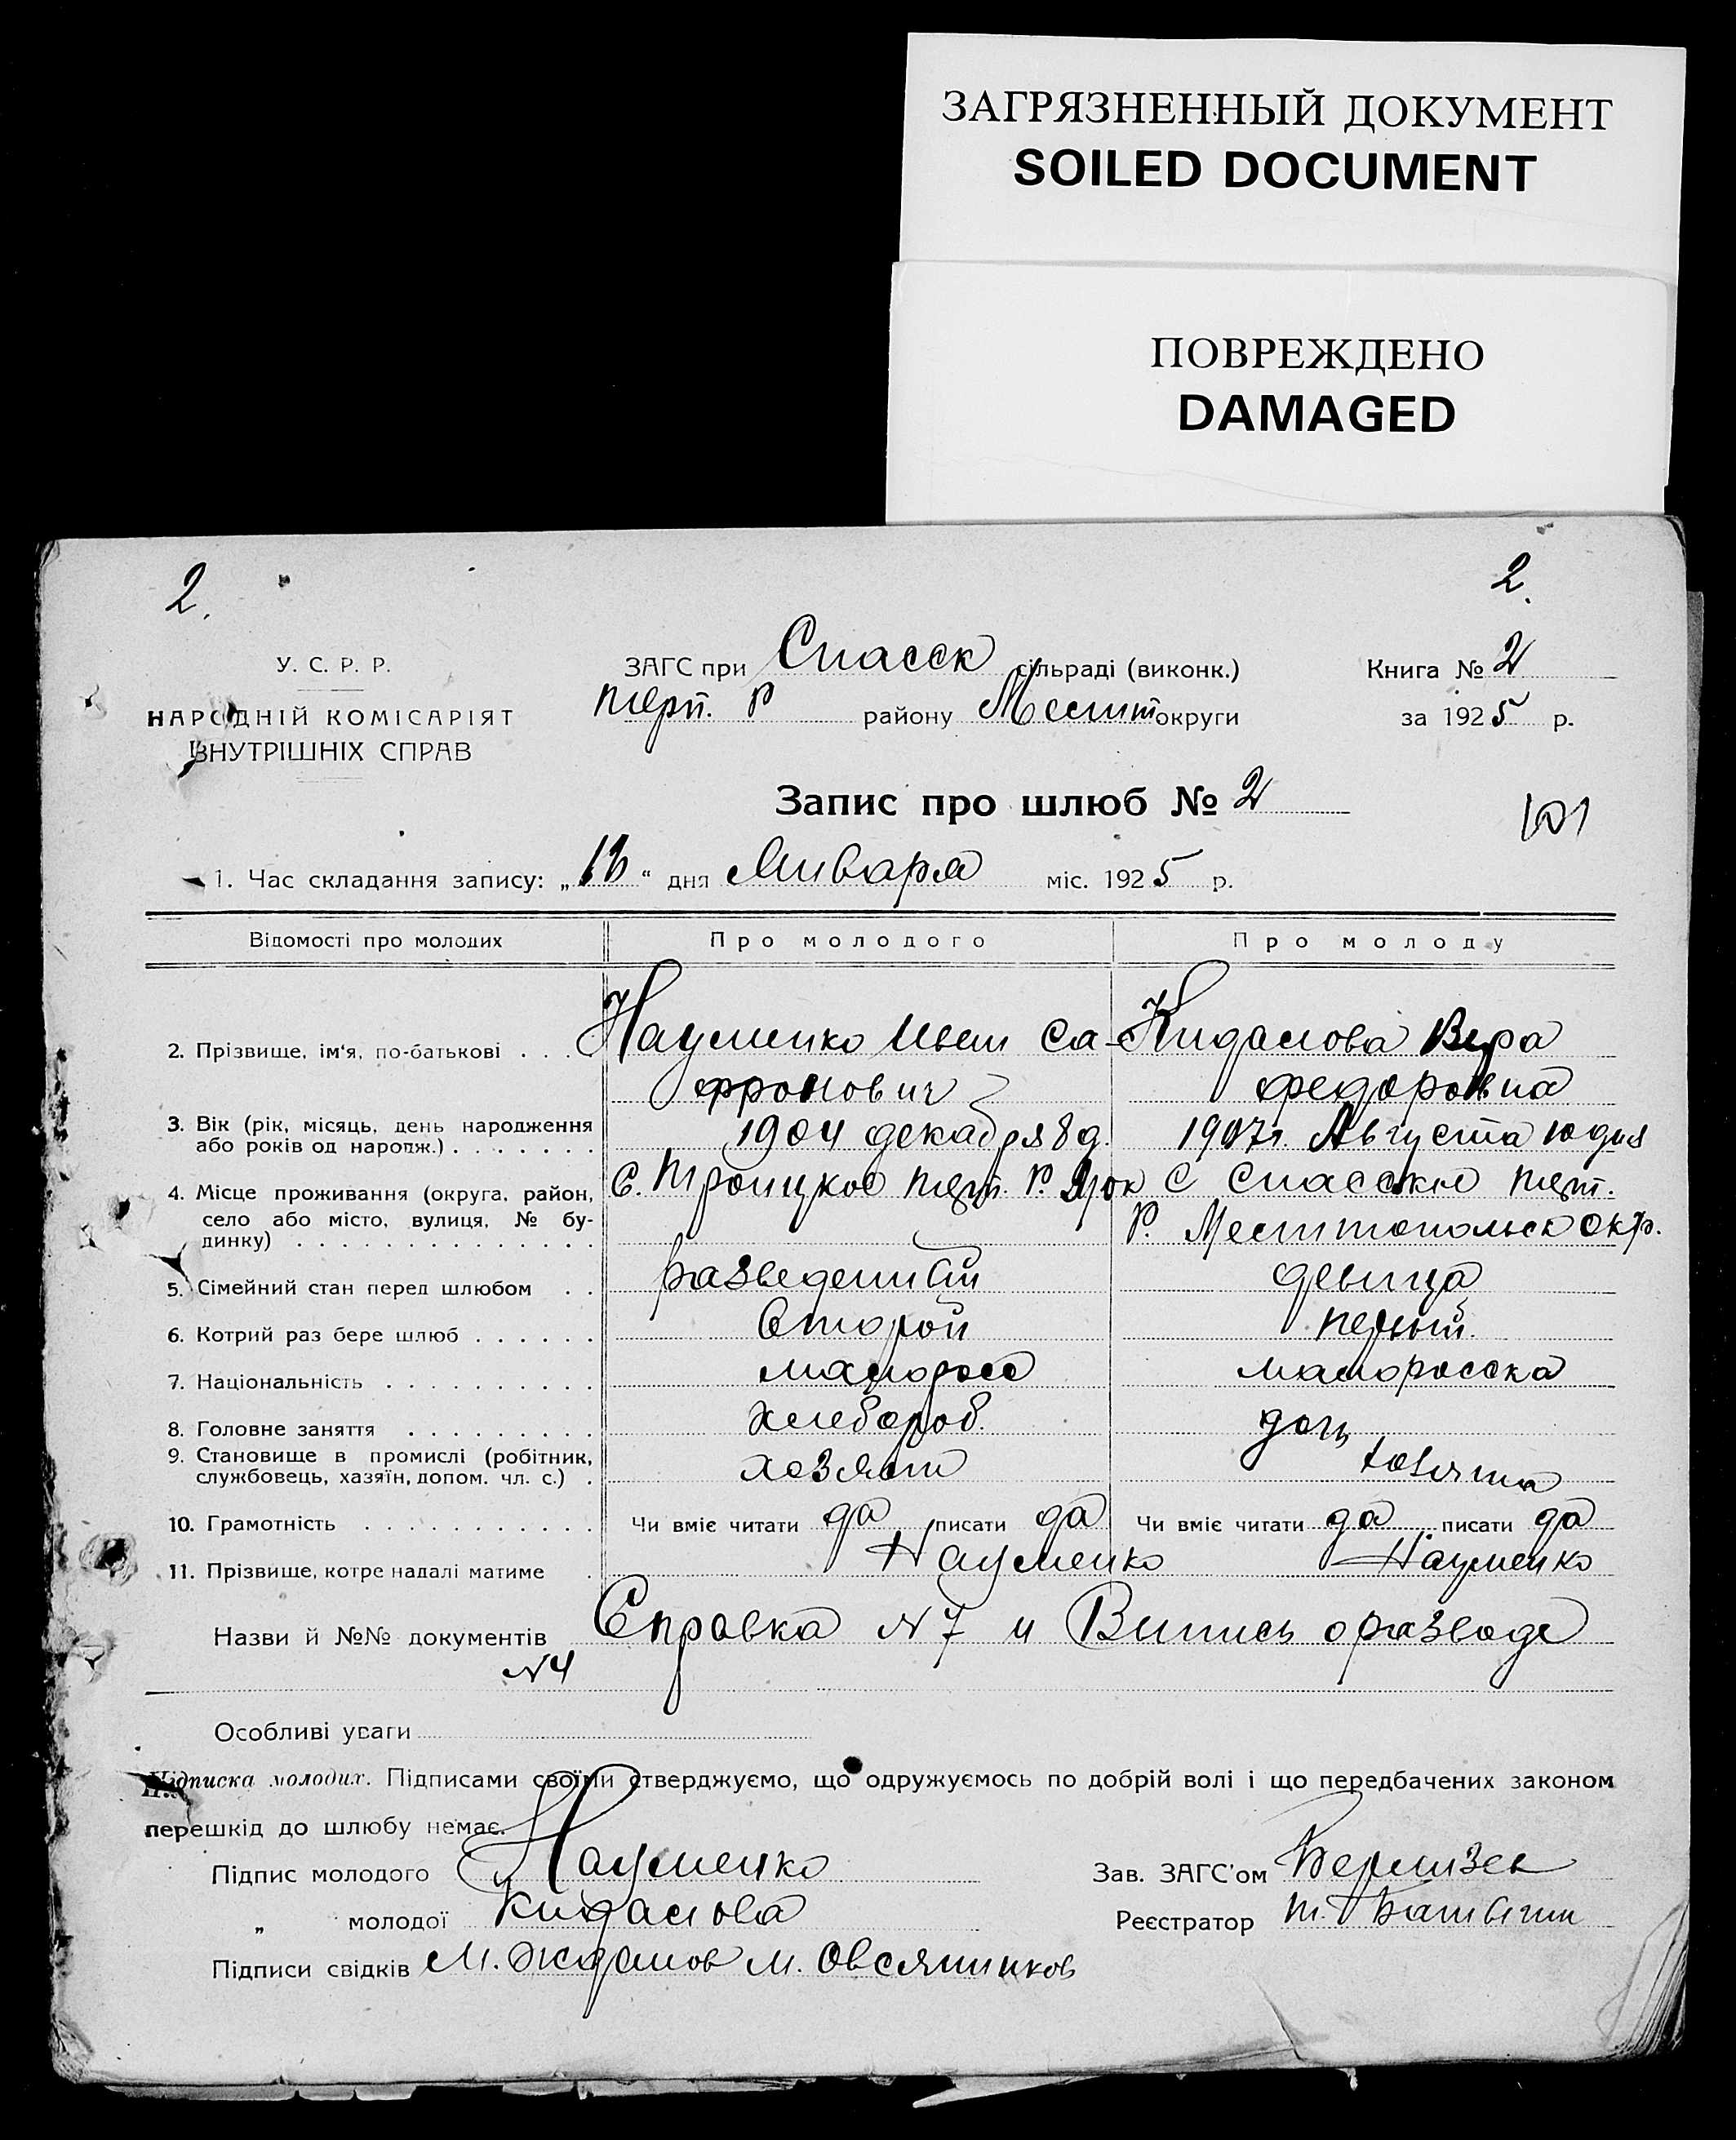 ЗАГРЯЗНЕННЫЙ ДОКУМЕНТ
SOILED DOCUMENT
ПОВРЕЖДЕНО
DAMAGED
2. 2.
У. С. Р. Р.
НАРОДНІЙ КОМІСАРІЯТ
ВНУТРІШНІХ СПРАВ
ЗАГС при Спасск сільраді (виконк.)
терп. Р району Мелит округи
Книга № 2
за 1925 р.
Запис про шлюб № 2
1. Час складання запису: „ “ дня Января міс. 1925 р.
Відомості про молодих Про молодого Про молоду
2. Прізвище, ім'я, по-батькові . . . Науменко Иван Са- Кидалова Вера
фронович Федоровна
3. Вік (рік, місяць, день народження 1904 декабря 8 д. 1907 г. Августа 10 дня
або років од народж.) . . . . . . .
4. Місце проживання (округа, район, С. Троицкое терп. Р. ок С Спасское терп.
село або місто, вулиця, № бу- Р. Мелитопольск окр.
динку) . . . . . . . . . . . . . .
5. Сімейний стан перед шлюбом . . разведенный девица
6. Котрий раз бере шлюб . . . . . . второй первый.
7. Національність . . . . . . . . . . малоросс малоросска
8. Головне заняття . . . . . . . . . хлебороб. дочь
9. Становище в промислі (робітник, хозяин хозяина
службовець, хазяїн, допом. чл. с.) .
10. Грамотність . . . . . . . . . . . Чи вміє читати да писати да Чи вміє читати да писати да
11. Прізвище, котре надалі матиме . Науменко Науменко
Назви й №№ документів Справка N 7 и Выпись о разводе
N 4
Особливі уваги
Підписка молодих. Підписами своїми стверджуємо, що одружуємось по добрій волі і що передбачених законом
перешкід до шлюбу немає.
Підпис молодого Науменко Зав. ЗАГС'ом
„ молодої Кидалова Реєстратор
Підписи свідків М. Жданов М. Овсянников